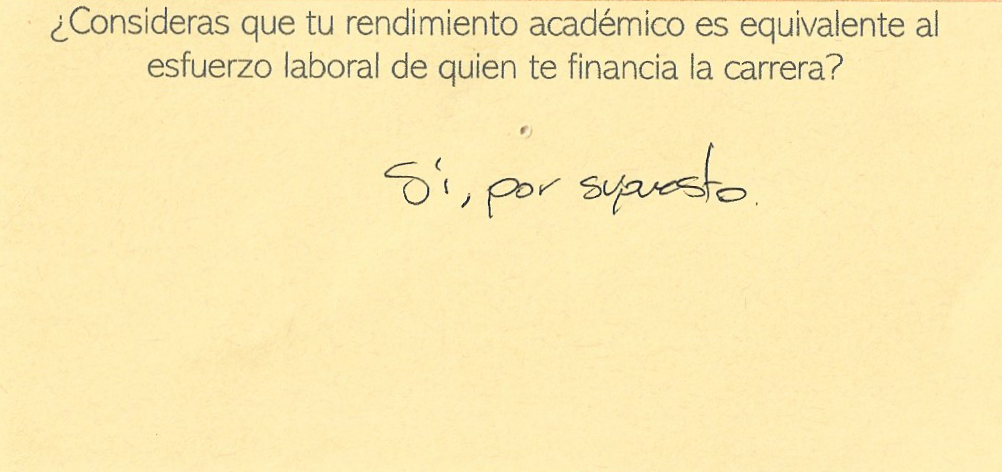 ¿Consideras que tu rendimiento académico es equivalente al
esfuerzo laboral de quien te financia la carrera?
Sí, por supuesto.